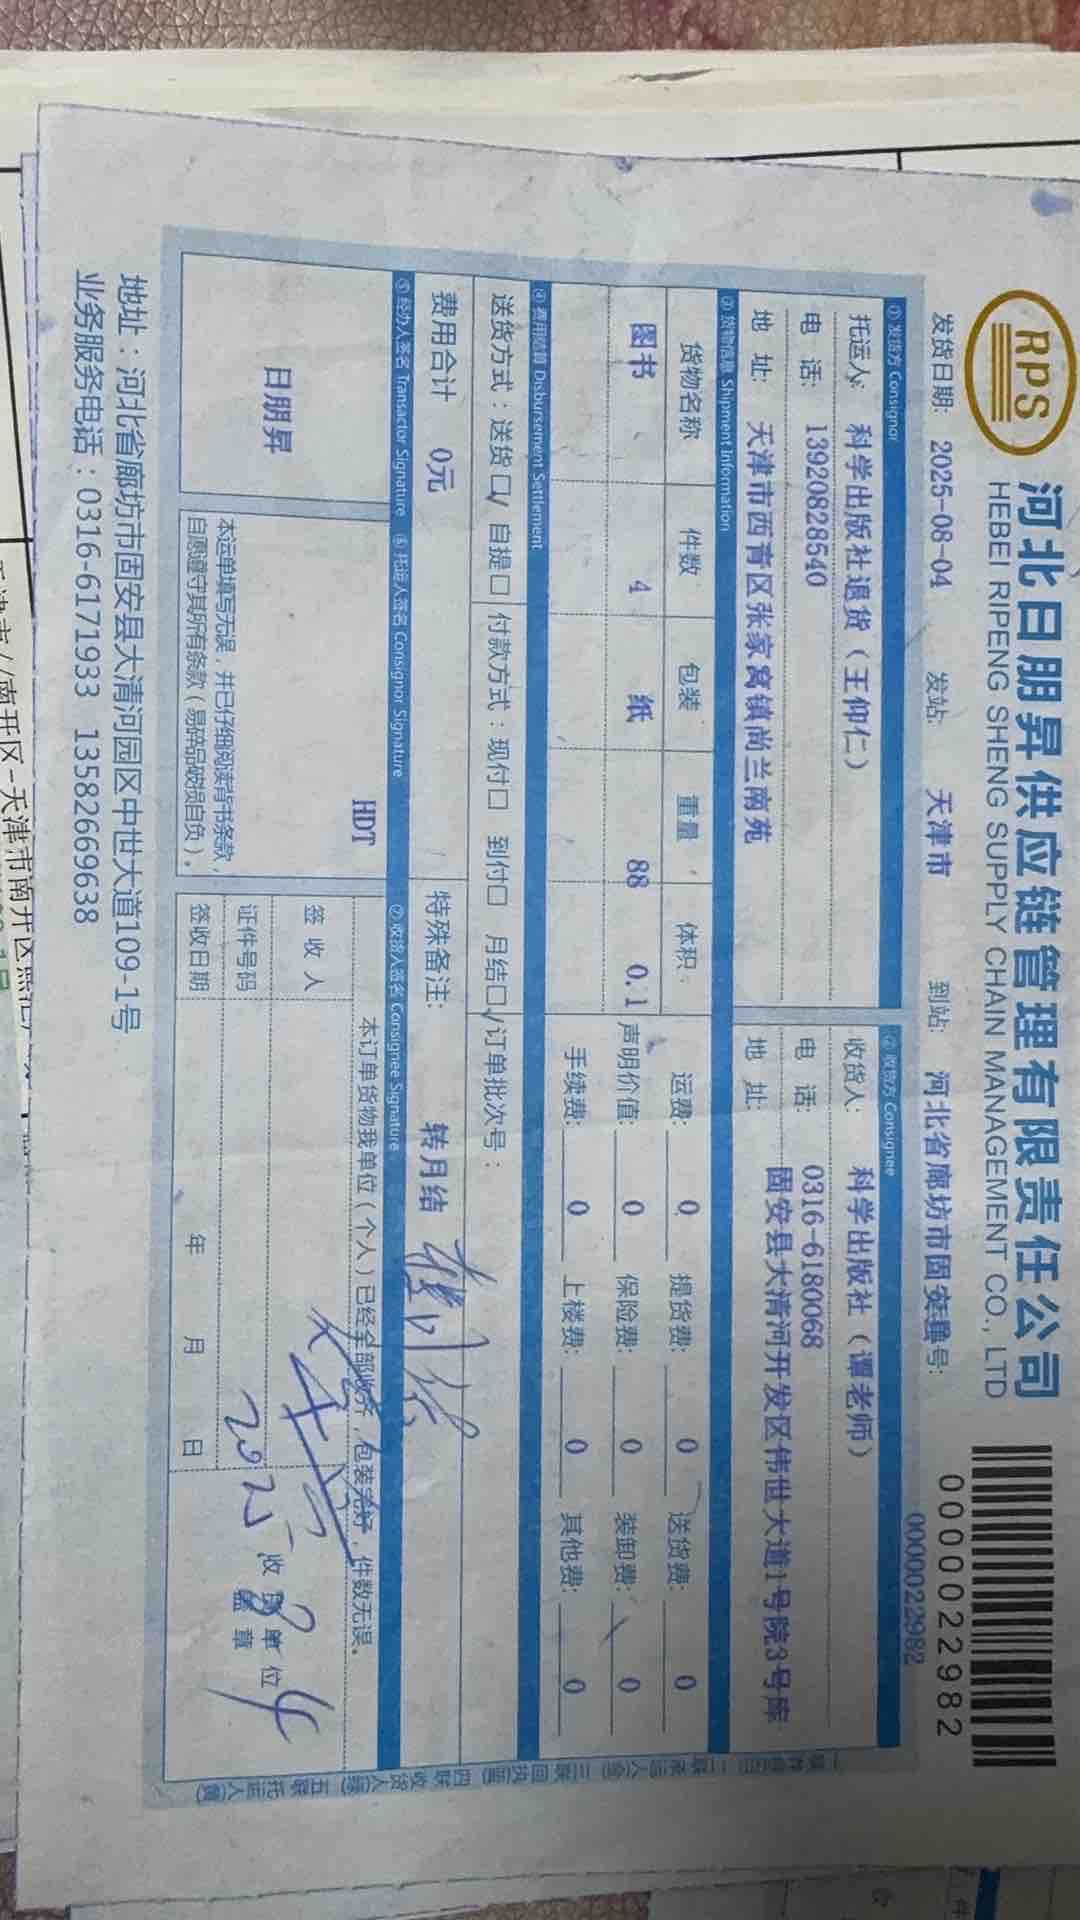 RPS
河北日朋昇供应链管理有限责任公司
HEBEI RIPENG SHENG SUPPLY CHAIN MANAGEMENT CO., LTD
0000022982
发货日期: 2025-08-04 发站: 天津市 到站: 河北省廊坊市固安县 号: 0000022982
① 发货方 Consignor
托运人: 科学出版社退货（王仰仁）
电 话: 13920828540
地 址: 天津市西青区张家窝镇尚兰南苑
② 收货方 Consignee
收货人: 科学出版社（谭老师）
电 话: 0316-6180068
地 址: 固安县大清河开发区伟世大道1号院3号库
③ 货物信息 Shipment Information
货物名称 件数 包装 重量 体积
图书 4 纸 88 0.1
运费: 0 提货费: 0 送货费: 0
声明价值: 0 保险费: 0 装卸费: 0
手续费: 0 上楼费: 0 其他费: 0
④ 费用结算 Disbursement Settlement
送货方式：送货□√ 自提□ 付款方式：现付□ 到付□ 月结□√ 订单批次号：
费用合计 0元 特殊备注: 转月结
⑤ 经办人签名 Transactor Signature ⑥ 托运人签名 Consignor Signature ⑦ 收货人签名 Consignee Signature
日朋昇
HDT
本运单填写无误，并已仔细阅读背书条款，
自愿遵守其所有条款（易碎品破损自负）。
本订单货物我单位（个人）已经全部收齐，包装完好，件数无误。
签 收 人
证件号码
签收日期 年 月 日
收货单位
盖章
2025 8 4
一联存根(白) 二联承运人(金) 三联回执(蓝) 四联收货人(绿) 五联托运人(黄)
地址：河北省廊坊市固安县大清河园区中世大道109-1号
业务服务电话：0316-6171933 13582669638